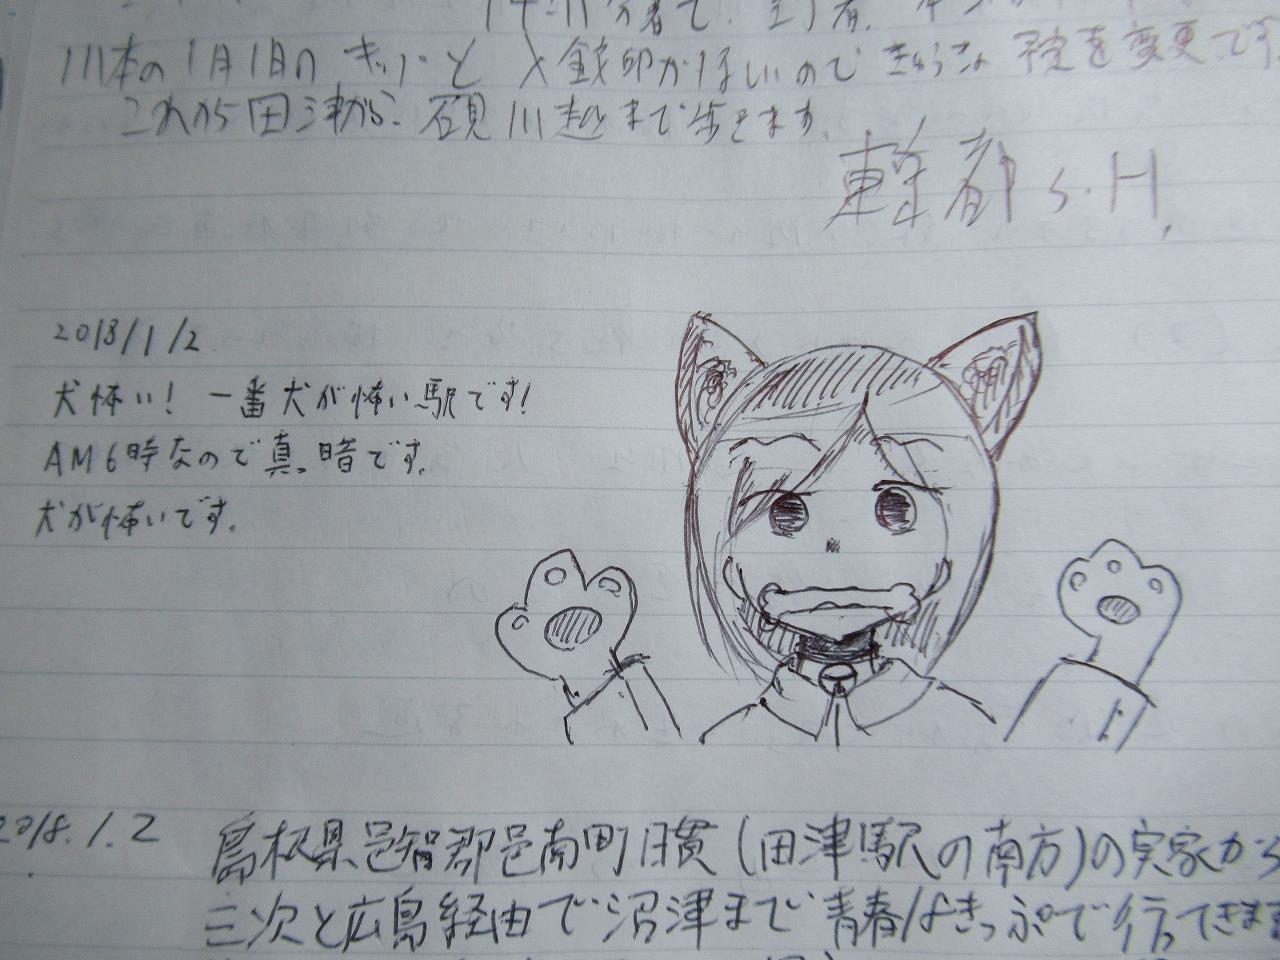 川本の1月1日の きっぷと 入鋏印がほしいので きゅうきょ 予定を変更です
これから田津から 石見川越まで歩きます。
S.H.
2018/1/2
犬怖い! 一番犬が怖い駅です!
AM6時なので真っ暗です。
犬が怖いです。
2018.1.2 島根県邑智郡邑南町日貫(田津駅の南方)の実家から
三次と広島経由で沼津まで青春18きっぷで行ってきます